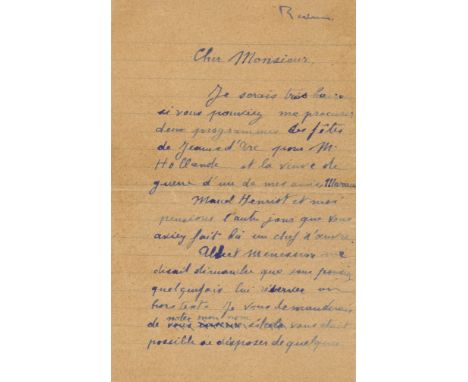 Cher Monsieur,
Je serais très
si vous pouviez me procurer
deux programmes des fêtes
de Jeanne d'Arc pour M
Hollande et la veuve de
guerre d'un de mes amis
Maud Henriot et moi
pensions l'autre jour que vous
aviez fait là un chef d'œuvre
Albert me
disait dimanche que vous pouviez
quelquefois lui réserver un
hors texte. Je vous demanderais
noter mon nom
de vous si cela vous était
possible de disposer de quelques